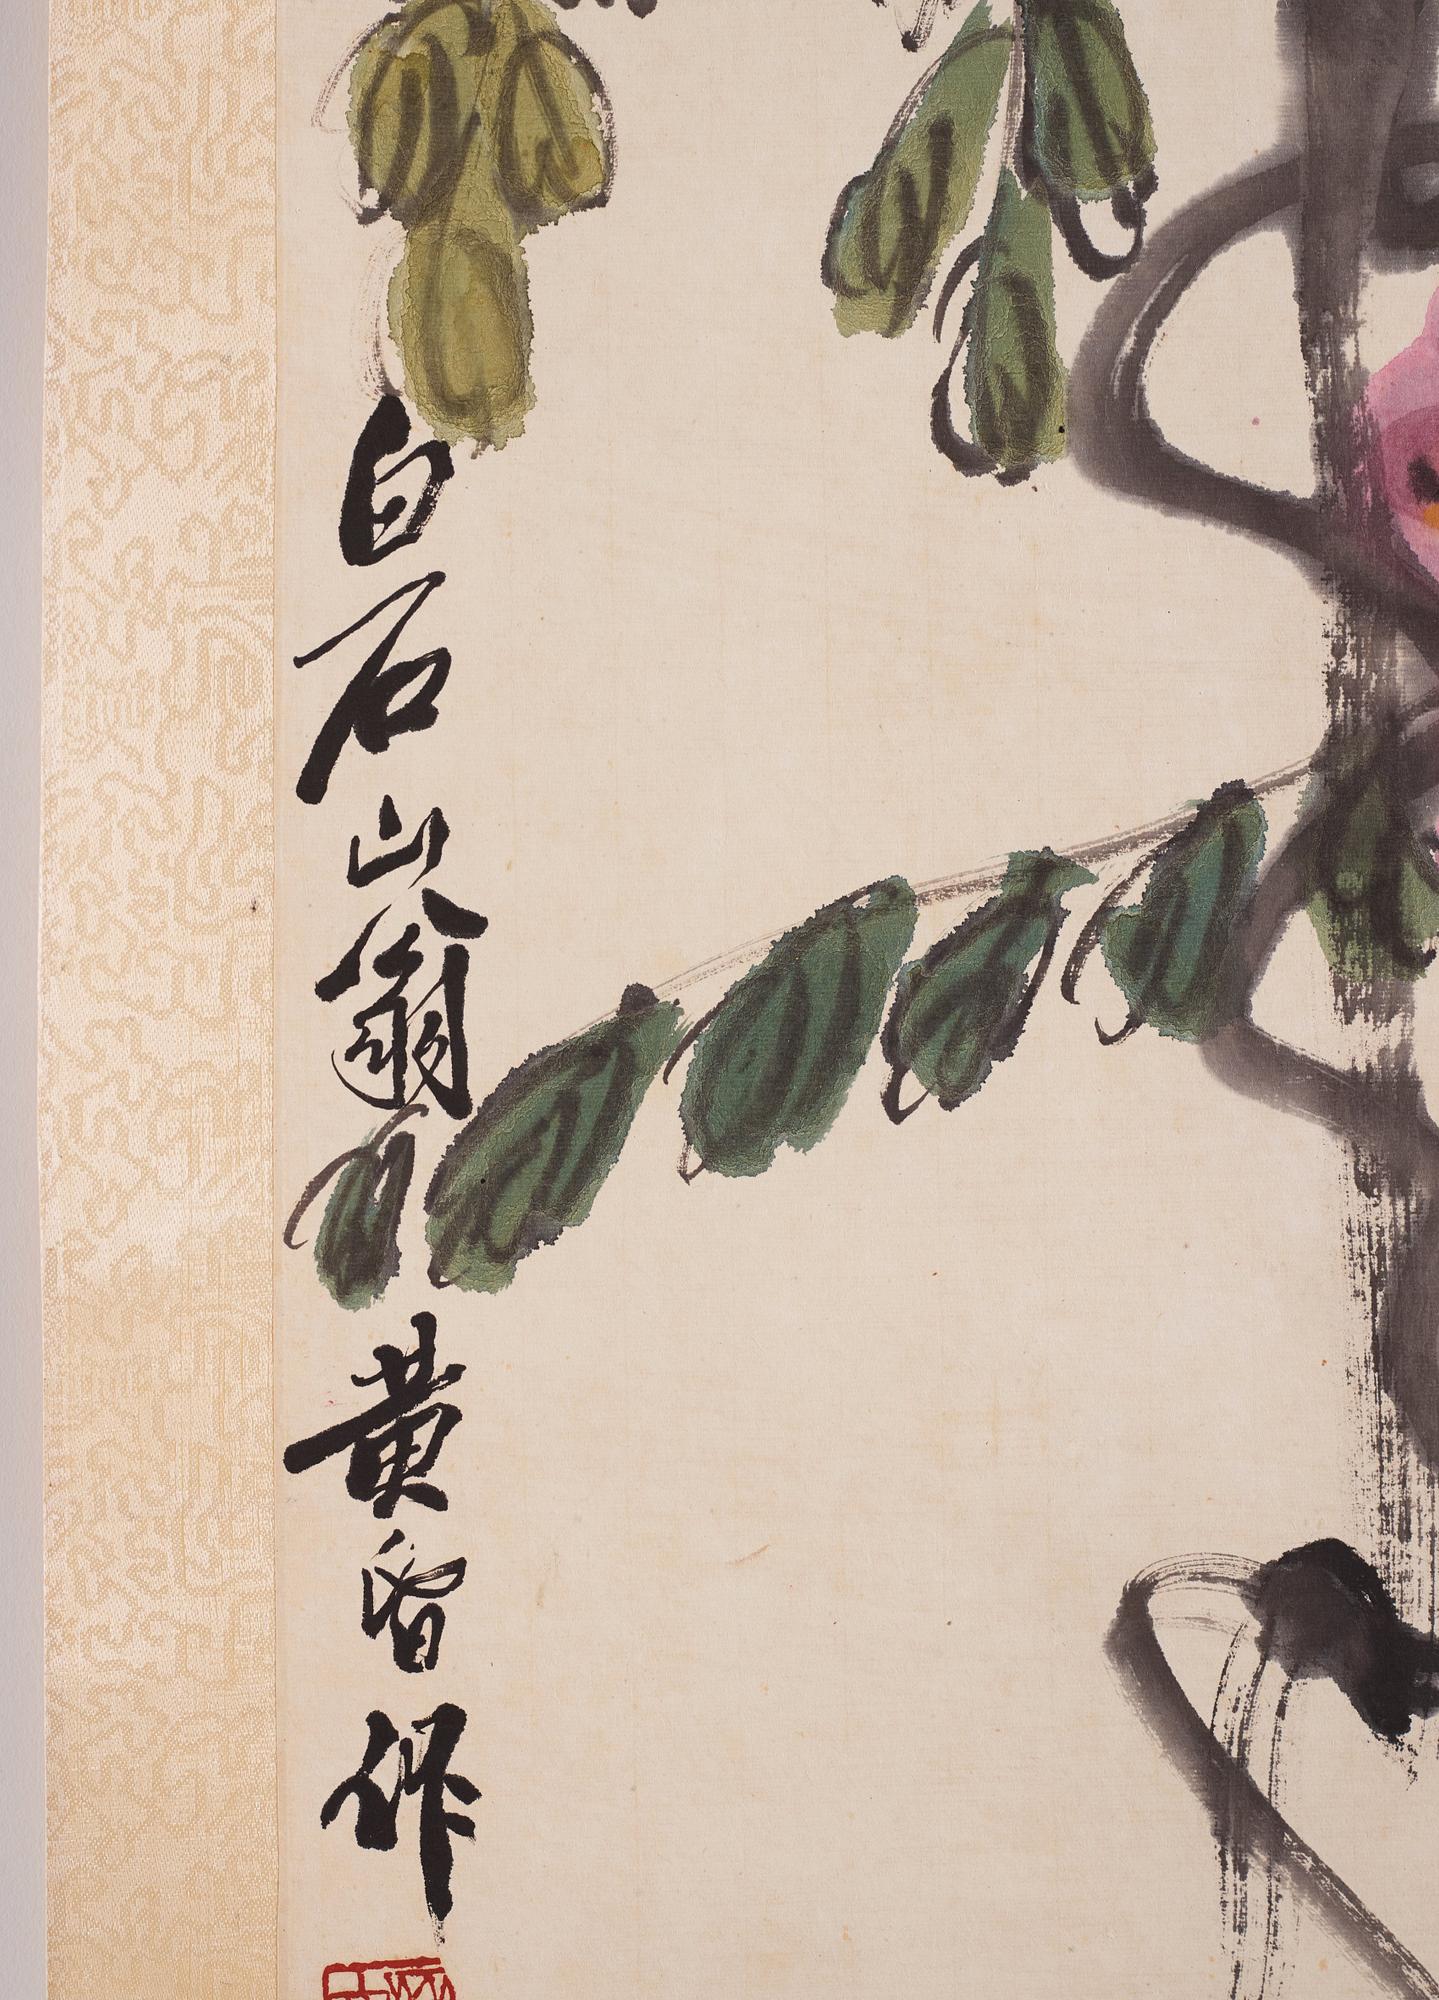 白石山翁
黄昏作